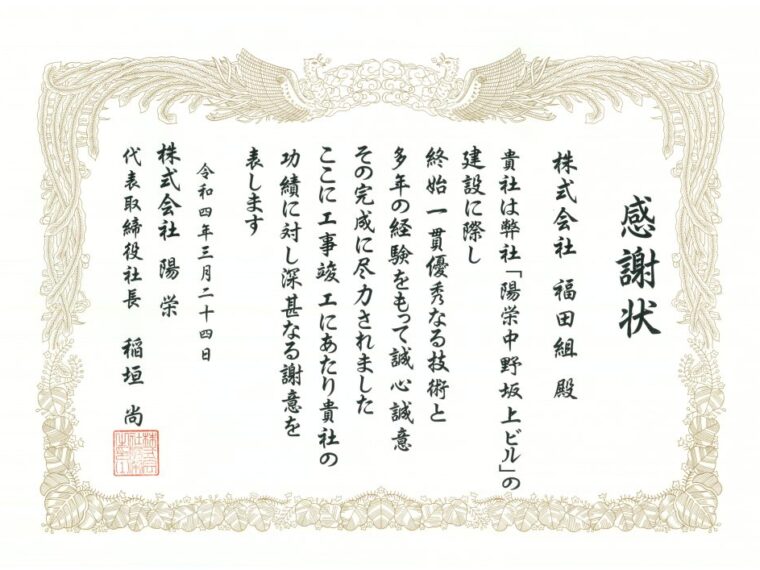 感謝状
株式会社 福田組 殿
貴社は弊社「陽栄中野坂上ビル」の
建設に際し
終始一貫優秀なる技術と
多年の経験をもって誠心誠意
その完成に尽力されました
ここに工事竣工にあたり貴社の
功績に対し深甚なる謝意を
表します
令和四年三月二十四日
株式会社 陽栄
代表取締役社長 稲垣 尚